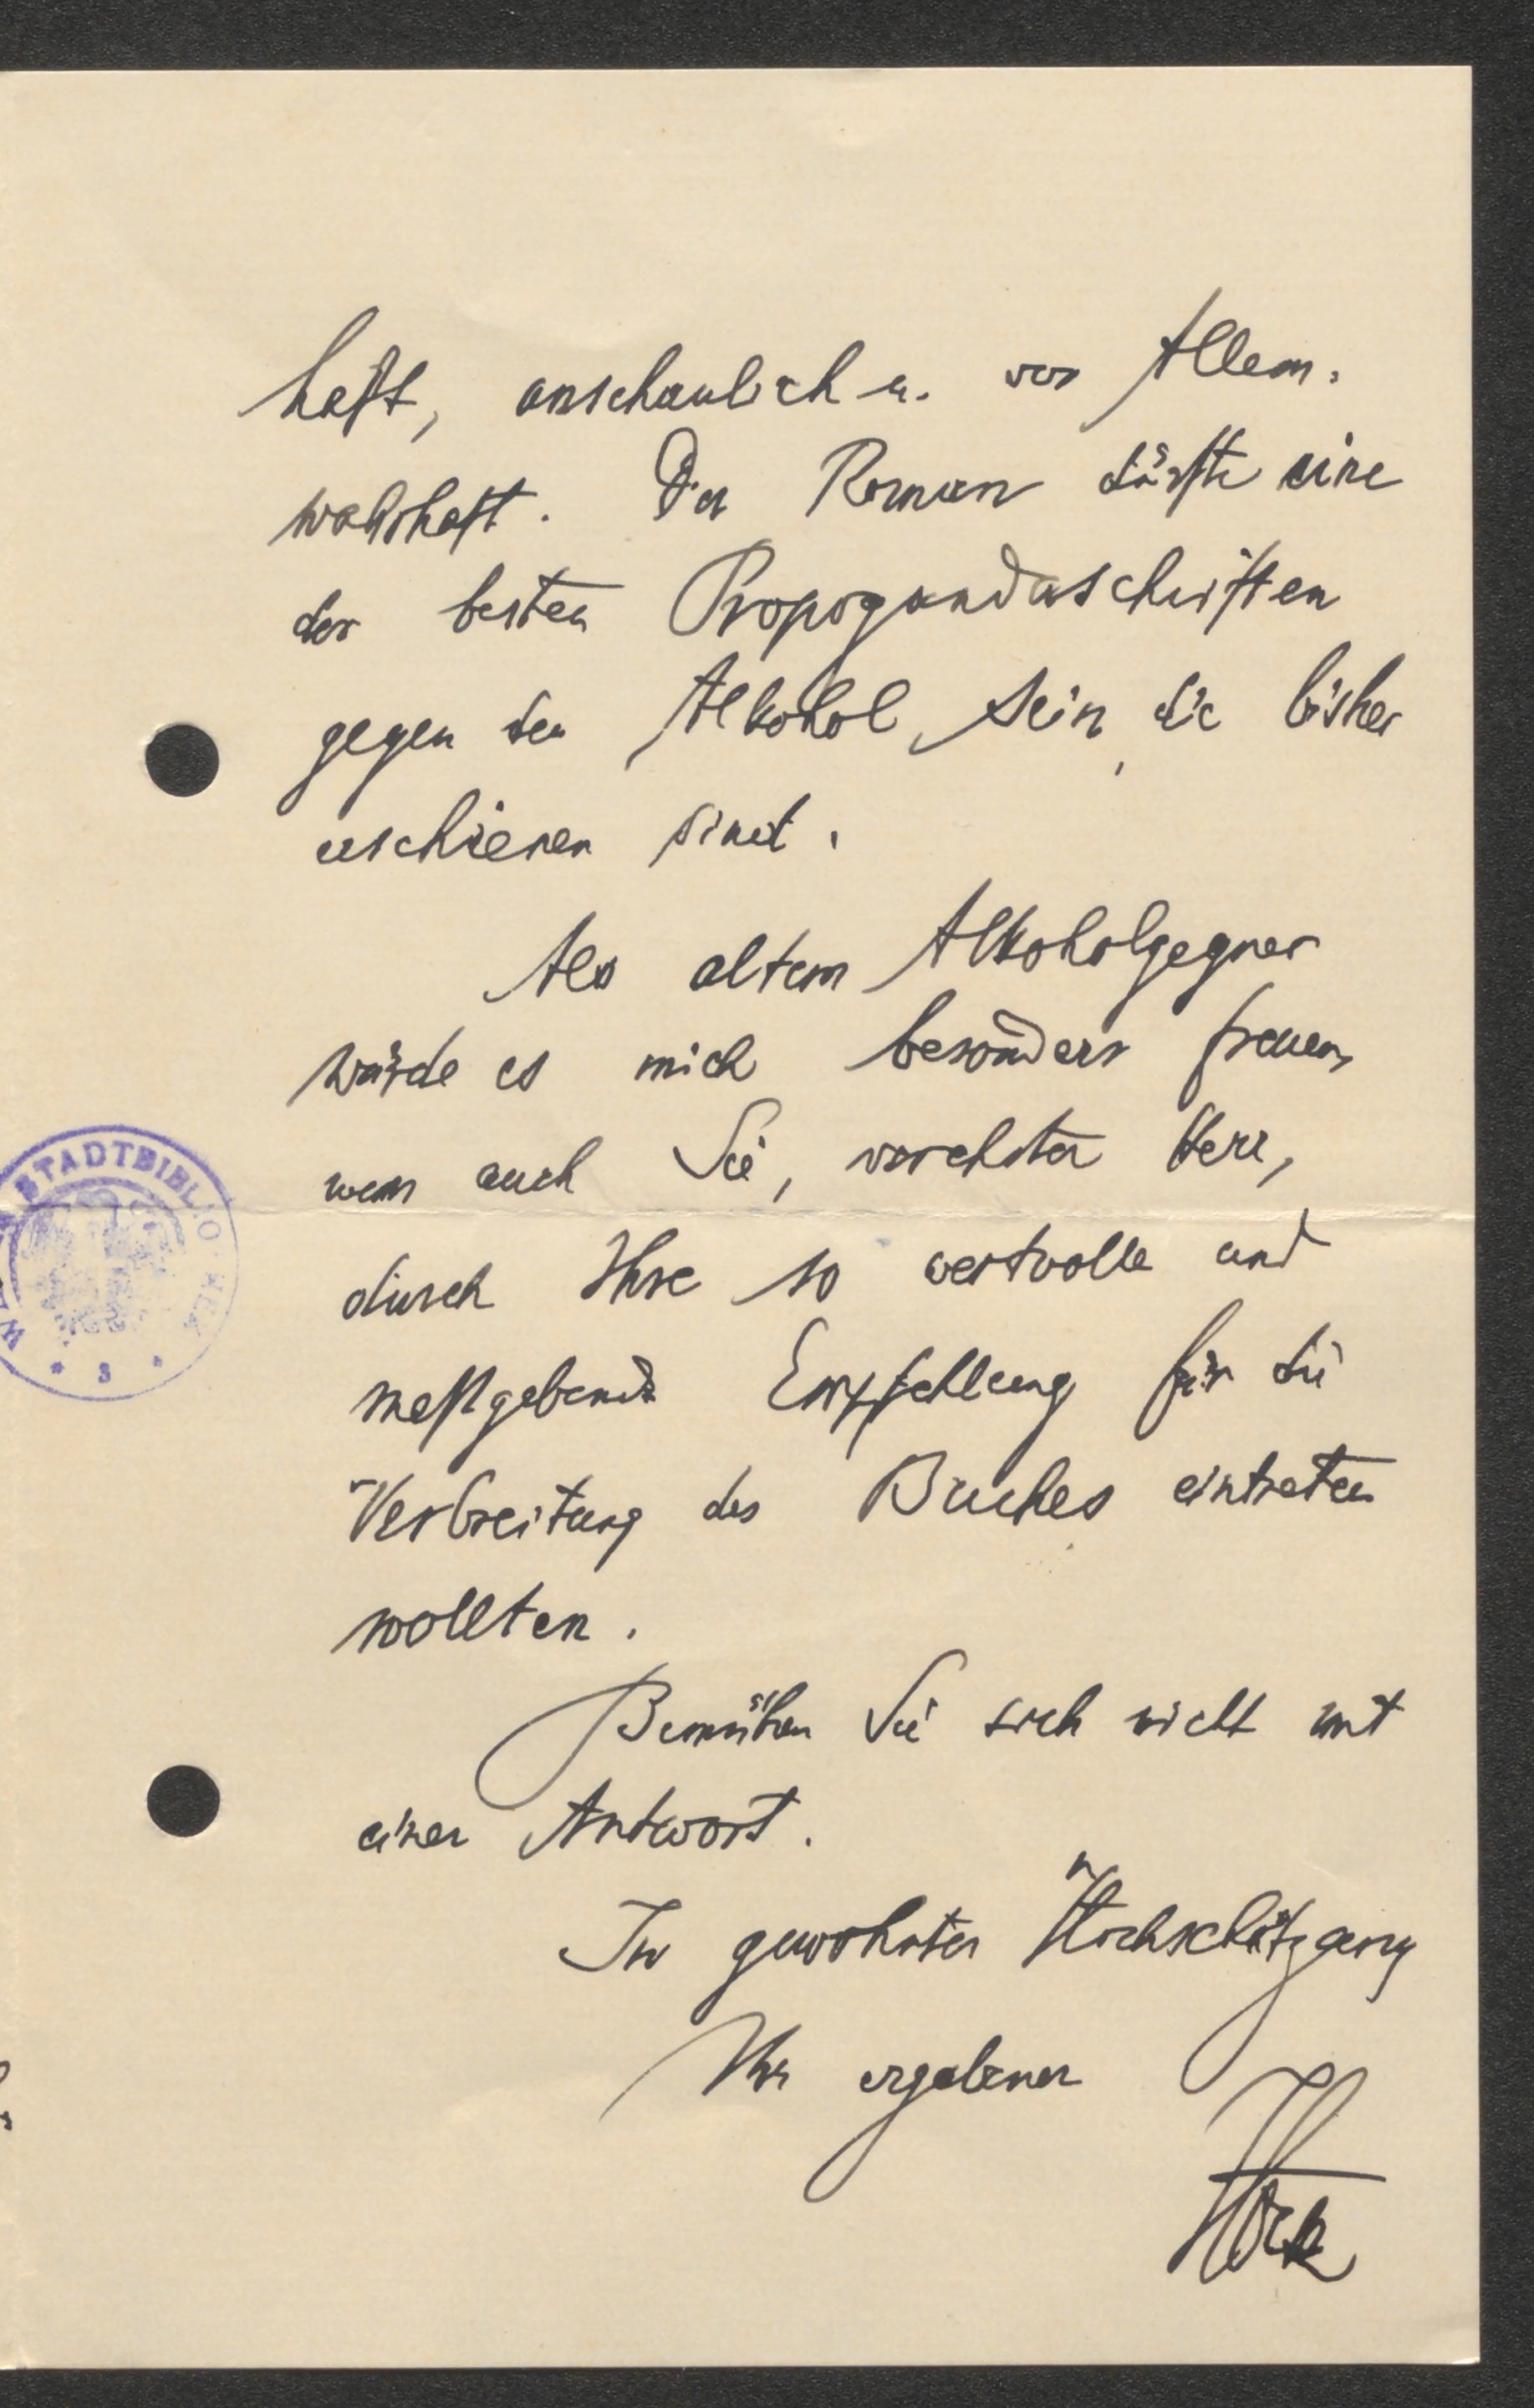 haft, anschaulich u. vor Allem.
wahrhaft. Der Roman dürfte eine
der besten Propogandaschriften
gegen den Alkohol sein, die bisher
erschienen sind.
Als altem Alkoholgegner
würde es mich besonders freuen,
wenn auch Sie, verehrter Herr,
durch Ihre so wertvolle und
maßgebende Empfehlung für die
Verbreitung des Buches eintreten
wollten.
Bemühen Sie sich nicht mit
einer Antwort.
In gewohnter Hochschätzung
Ihr ergebener
STADTBIBLIOTHEK
* 3 *